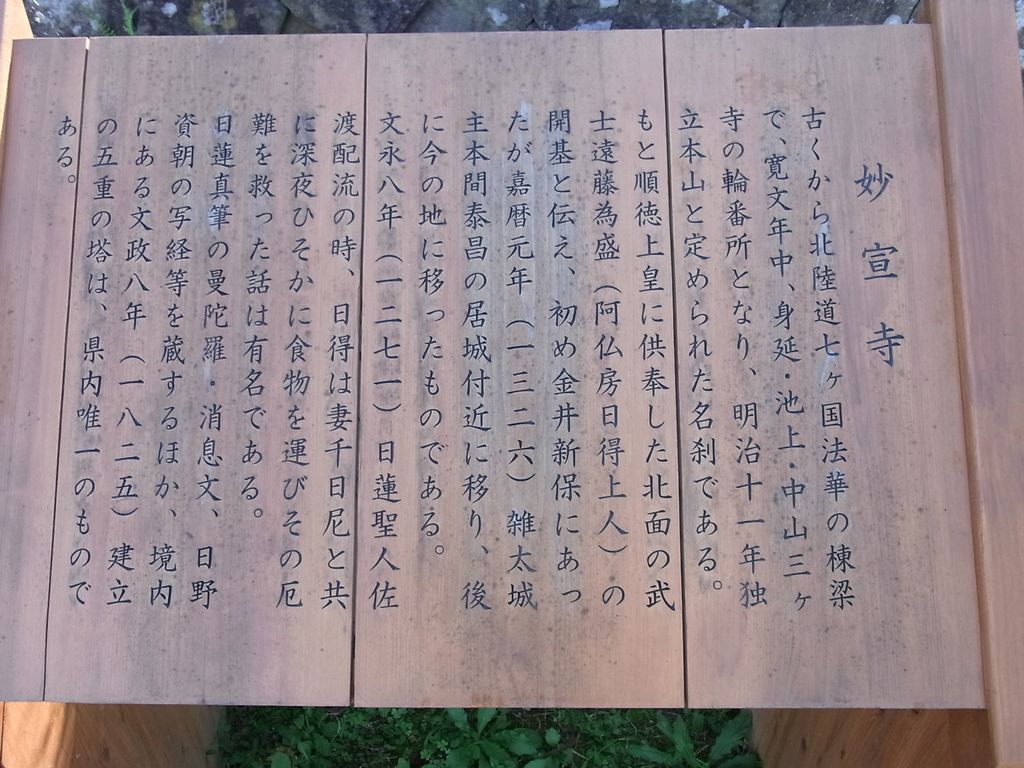 妙宣寺
古くから北陸道七ヶ国法華の棟梁
で、寛文年中、身延・池上・中山三ヶ
寺の輪番所となり、明治十一年独
立本山と定められた名刹である。
もと順徳上皇に供奉した北面の武
士遠藤為盛（阿仏房日得上人）の
開基と伝え、初め金井新保にあっ
たが嘉暦元年（一三二六）雑太城
主本間泰昌の居城付近に移り、後
に今の地に移ったものである。
文永八年（一二七一）日蓮聖人佐
渡配流の時、日得は妻千日尼と共
に深夜ひそかに食物を運びその厄
難を救った話は有名である。
日蓮真筆の曼陀羅・消息文、日野
資朝の写経等を蔵するほか、境内
にある文政八年（一八二五）建立
の五重の塔は、県内唯一のもので
ある。